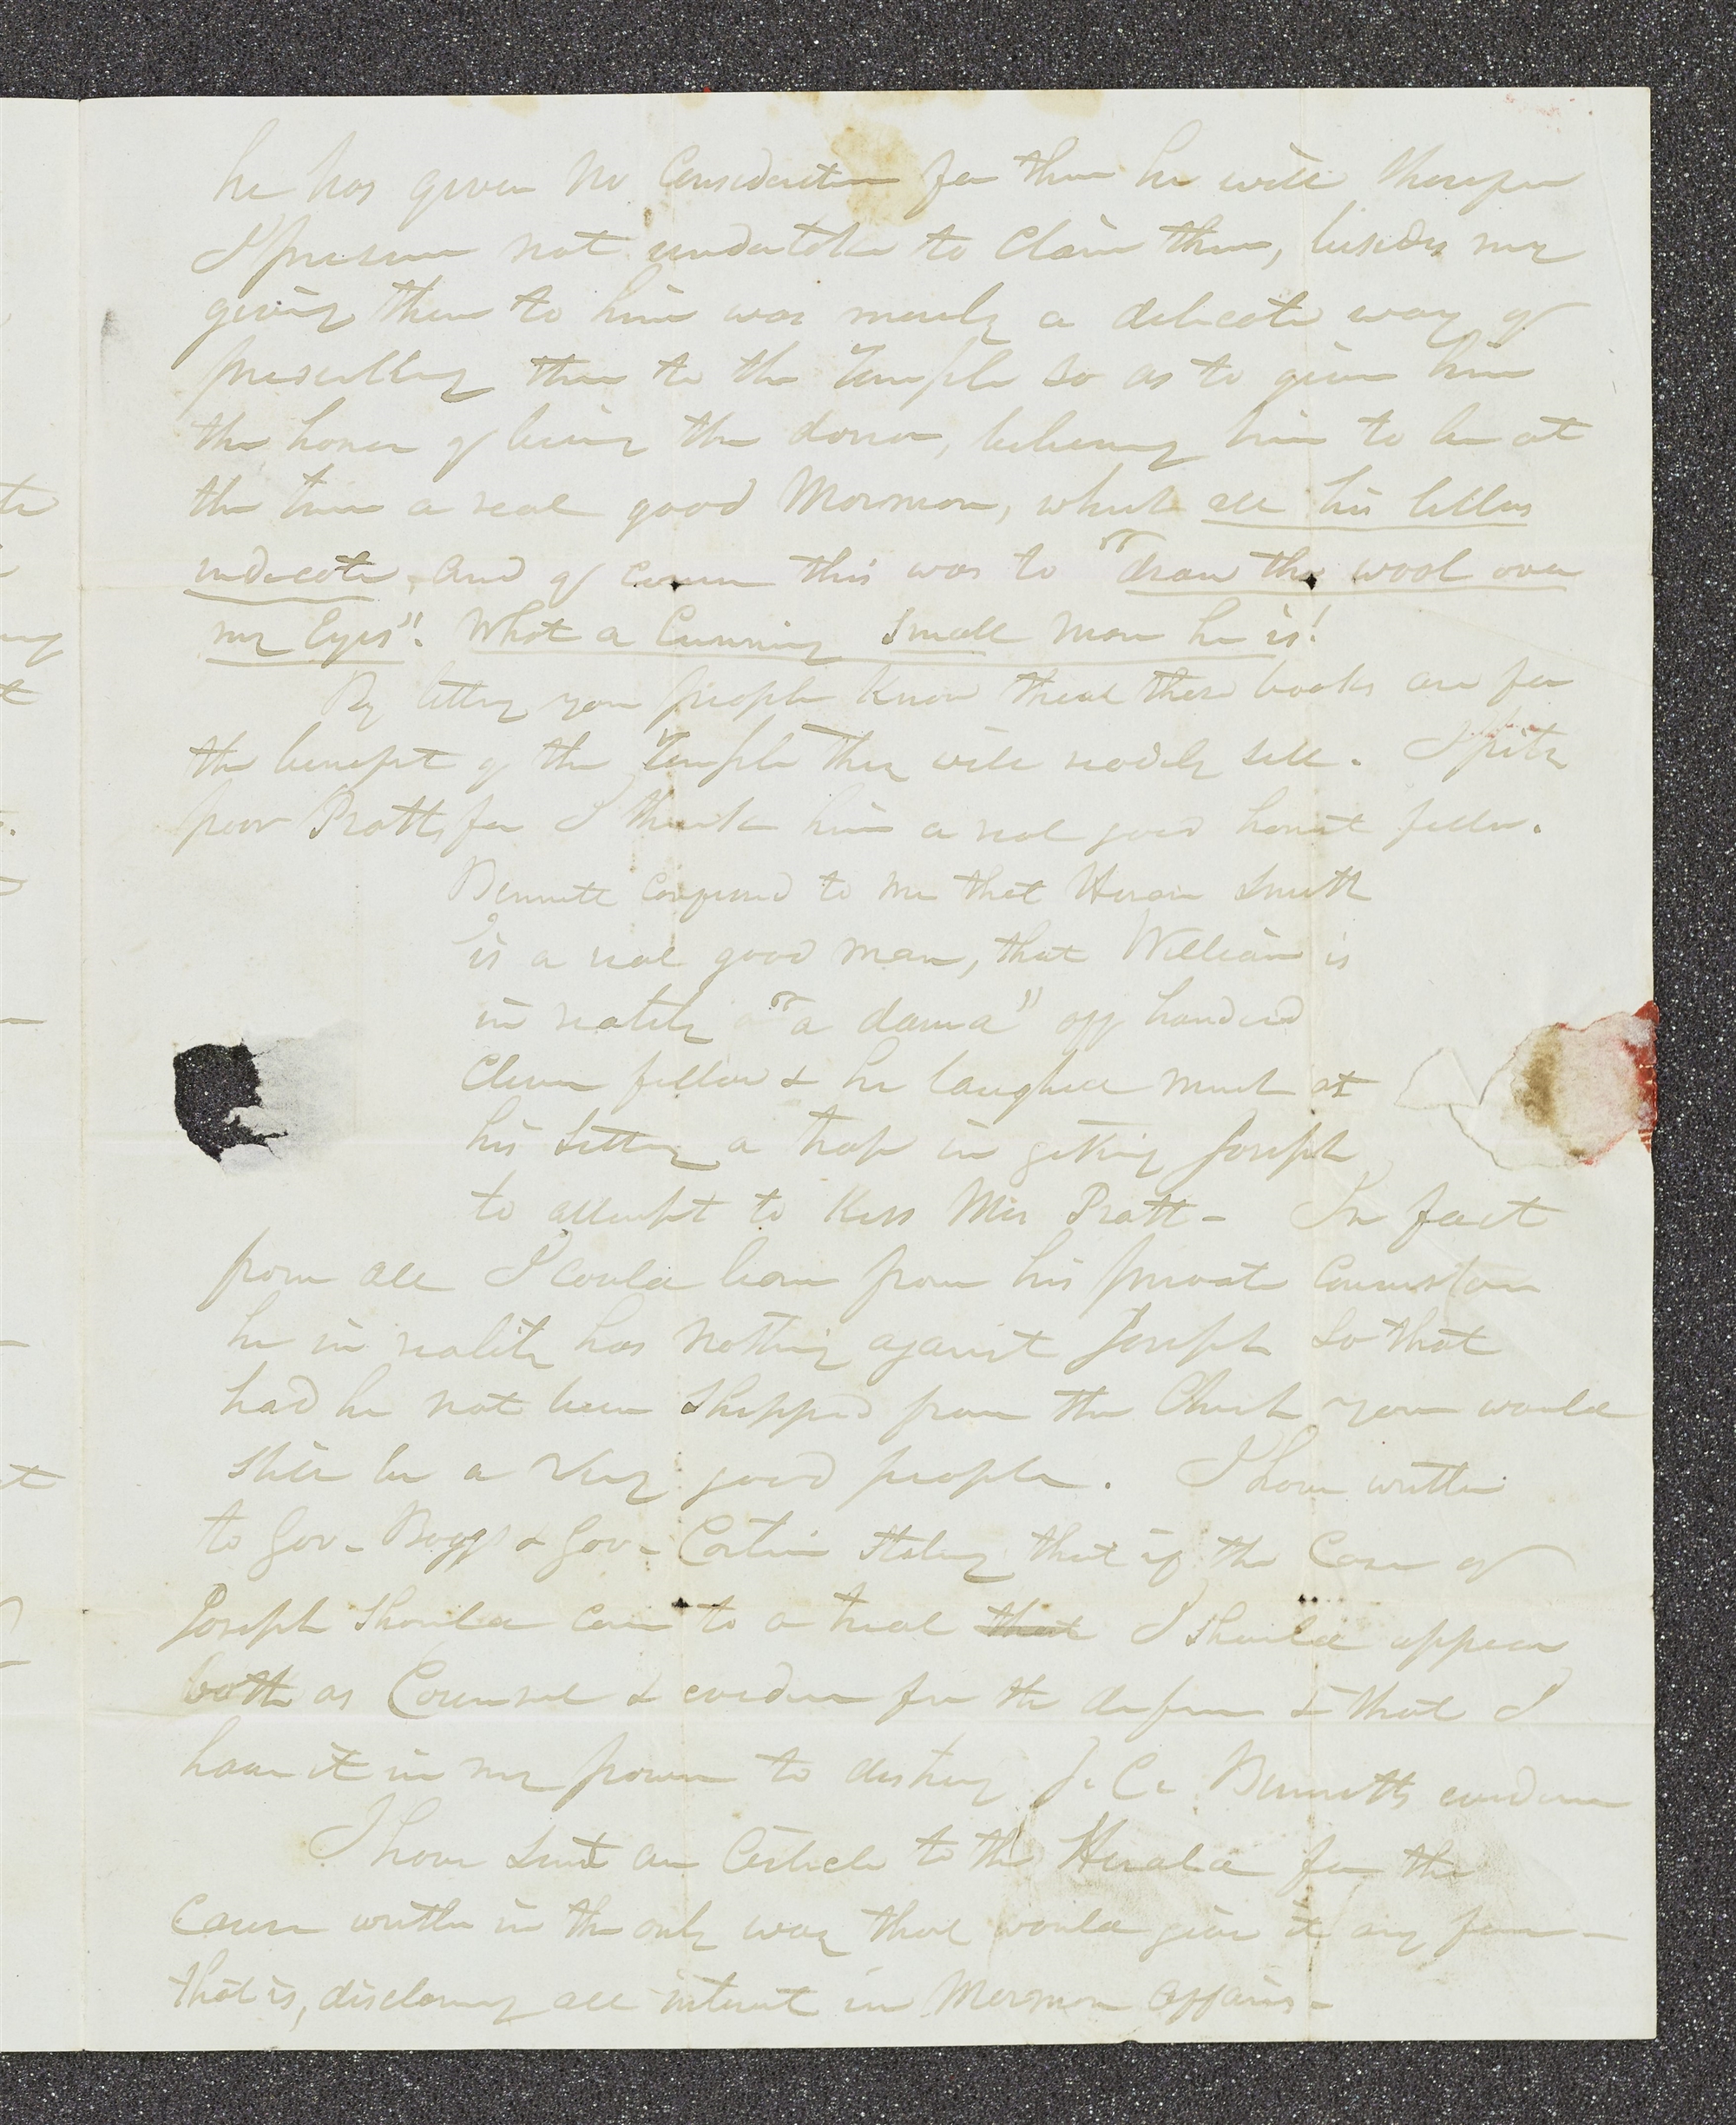 he has given no Consideration for them he will therefore
I presume not undertake to Claim them, besides my
giving them to him was merely a delicate way of
presenting them to the Temple so as to give him
the honor of being the donor, believing him to be at
the time a real good Mormon, which all his letters
indicate, and of course this was to "draw the wool over
my Eyes"! What a Cunning Small man he is!
By letting your people Know that these books are for
the benefit of the Temple they will readily sell. I pity
poor Pratt, for I think him a real good honest fellow.
Bennett confessed to me that Hiram Smith
is a real good man, that William is
in reality "a damd" off handed
Clever fellow & he laughed much at
his setting a trap in getting Joseph
to attempt to Kiss Mrs Pratt - In fact
from all I could learn from his private Conversation
he in reality has nothing against Joseph so that
had he not been Shipped from the Church you would
still be a very good people. I have written
to Gov- Boggs & Gov- Carlin stating that if the Case of
Joseph should come to a trial that I should appear
both as Counsel & evidence for the defence & that I
have it in my power to destroy J. C. Bennetts evidence
I have sent an Article to the Herald for the
cause written in the only way that would give it any force -
that is, disclaiming all interest in Mormon affairs -